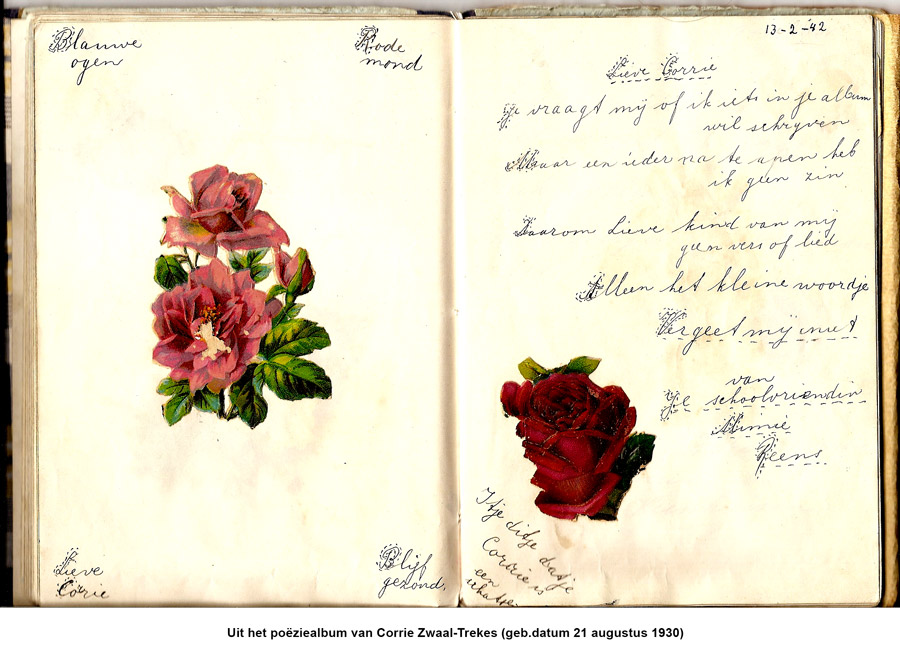 Blauwe
ogen
Rode
mond
Lieve
Corie
Blijf
gezond.
13-2-'42
Lieve Corrie
Je vraagt mij of ik iets in je album
wil schryven
Maar een ieder na te apen heb
ik geen zin
Daarom Lieve kind van mij
geen vers of lied
Alleen het kleine woordje
Vergeet mij niet
van
Je schoolvriendin
Mimie
Reens.
Itje ditje datje
Corrie is
een
schatje
Uit het poëziealbum van Corrie Zwaal-Trekes (geb.datum 21 augustus 1930)